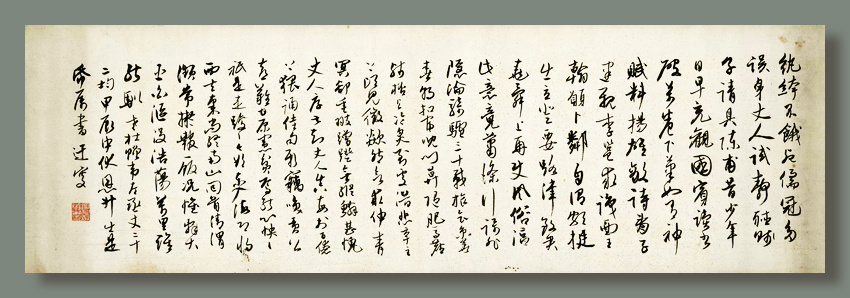 紈絝不餓死儒冠多
誤身丈人試靜聽賤
子請具陳甫昔少年
日早充觀國賓讀書
破萬卷下筆如有神
賦料揚雄敵詩看子
建親李邕求識面王
翰願卜鄰自謂頗挺
生立登要路津致君
堯舜上再使風俗淳
此意竟蕭條行歌非
隱淪騎驢三十載旅食京華
春朝扣富兒門暮隨肥馬塵
殘杯與冷炙到處潛悲辛主
上頃見徵欻然欲求伸青
冥卻垂翅蹭蹬無縱鱗甚愧
丈人厚甚知丈人真每於百僚
上猥誦佳句新竊效貢公
喜難甘原憲貧焉能心怏々
祇是走踆々今欲東入海即將
西去秦尚憐終南山回首清渭
濱常擬報一飯況懷辭大
臣白鷗沒浩蕩萬里誰
能馴老杜贈韋左丞丈二十
二韵甲
屬書迂叟